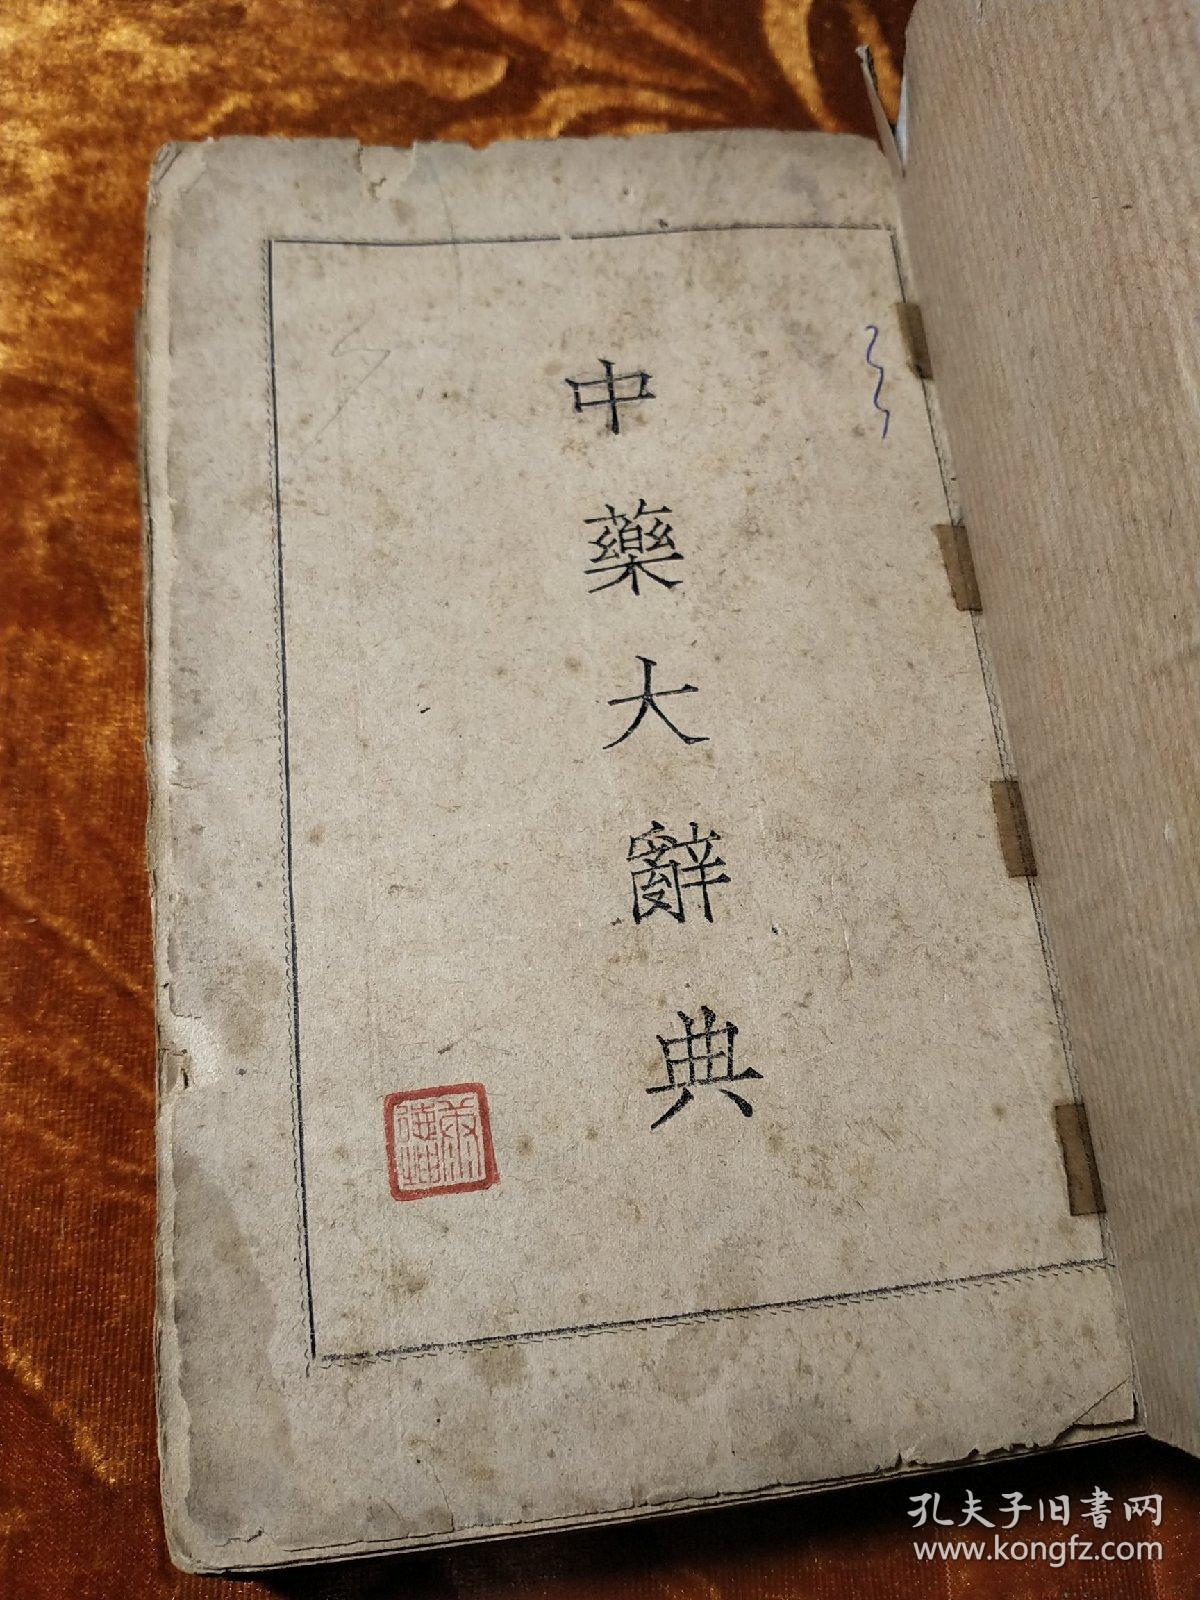 中藥大辭典
孔夫子旧書网
www.kongfz.com